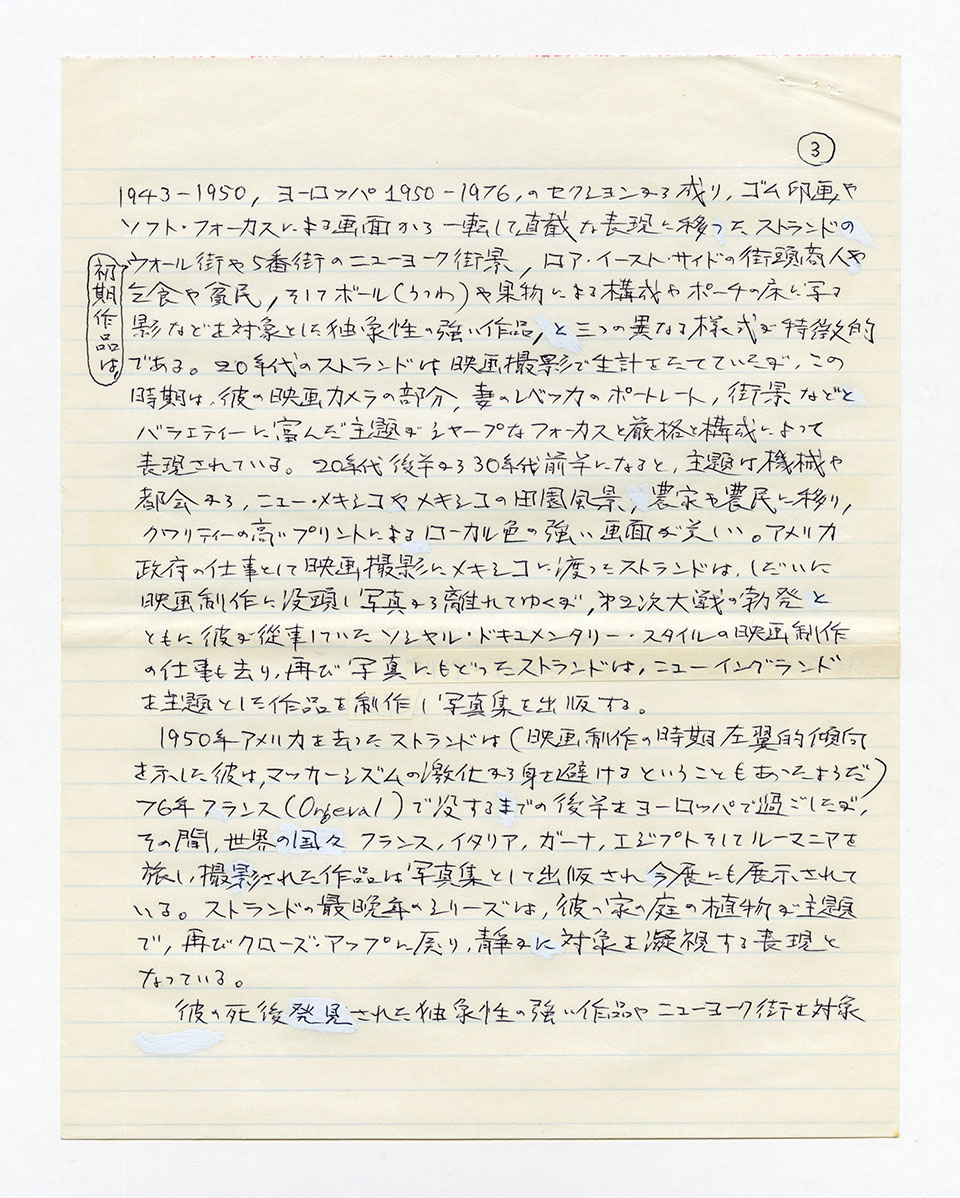 3
1943-1950, ヨーロッパ1950-1976, のセクションから成り, ゴム印画や
ソフト・フォーカスによる画面から一転して直截な表現に移ったストランドの
初期作品は,
ウォール街や5番街のニューヨーク街景, ロア・イースト・サイドの街頭商人や
乞食や貧民, そしてボール(うつわ)や果物による構成やポーチの床に写る
影などを対象とした抽象性の強い作品, と三つの異なる様式が特徴的
である。20年代のストランドは映画撮影で生計をたてていたが, この
時期は, 彼の映画カメラの部分, 妻のレベッカのポートレート, 街景などと
バラエティーに富んだ主題がシャープなフォーカスと厳格な構成によって
表現されている。20年代後半から30年代前半になると, 主題は機械や
都会から, ニュー・メキシコやメキシコの田園風景, 農家や農民に移り,
クワリティーの高いプリントによるローカル色の強い画面が美しい。アメリカ
政府の仕事として映画撮影にメキシコに渡ったストランドは, しだいに
映画制作に没頭し写真から離れてゆくが, 第2次大戦の勃発と
ともに彼が従事していたソシャル・ドキュメンタリー・スタイルの映画制作
の仕事も去り, 再び写真にもどったストランドは, ニューイングランド
を主題とした作品を制作し写真集を出版する。
1950年アメリカを去ったストランドは(映画制作の時期左翼的傾向
を示した彼は, マッカーシズムの激化から身を避けるということもあったようだ)
76年フランス(Orgeval)で没するまでの後半をヨーロッパで過ごしたが,
その間, 世界の国々 フランス, イタリア, ガーナ, エジプトそしてルーマニアを
旅し, 撮影された作品は写真集として出版され今展にも展示されて
いる。ストランドの最晩年のシリーズは, 彼の家の庭の植物が主題
で, 再びクローズ・アップに戻り, 静かに対象を凝視する表現と
なっている。
彼の死後発見された抽象性の強い作品やニューヨーク街を対象